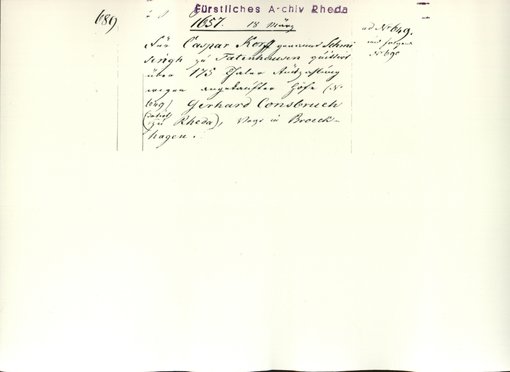 Fürstliches Archiv Rheda
689
1657. 18 März
ad № 649.
Für Caspar Korff genannt Schmi
singh zu Tatenhausen quittirt
über 175 Thaler Auszahlung
wegen angekaufter Höfe (№
649) Gerhard Consbruch
(zu Rheda), Vogt in Brock-
hagen.